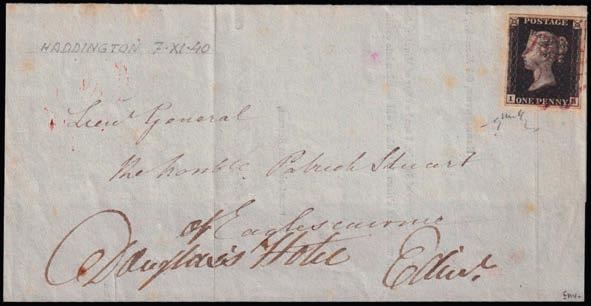 HADDINGTON 7·XI·40
POSTAGE
ONE PENNY
Lieut General
The Honble Patrick Stuart
of Eaglescairnie
Douglas's Hotel Edinr.